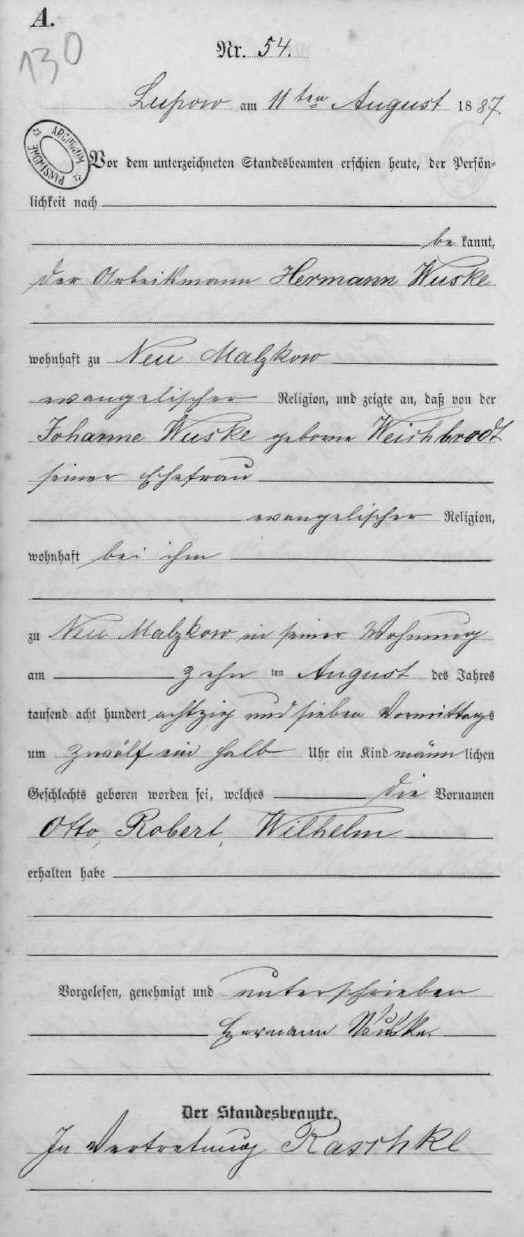 A.
130
Nr. 54.
Lupow am 11ten August 1887
Vor dem unterzeichneten Standesbeamten erschien heute, der Persön-
lichkeit nach
be kannt,
der Arbeitsmann Hermann Wuske
wohnhaft zu Neu Malzkow
evangelischer Religion, und zeigte an, daß von der
Johanne Wuske geborne Weichbrodt
seiner Ehefrau
evangelischer Religion,
wohnhaft bei ihm
zu Neu Malzkow in seiner Wohnung
am zehn ten August des Jahres
tausend acht hundert achtzig und sieben Vormittags
um zwölf ein halb Uhr ein Kind männ lichen
Geschlechts geboren worden sei, welches die Vornamen
Otto, Robert, Wilhelm
erhalten habe
Vorgelesen, genehmigt und unterschrieben
Hermann Wuske
Der Standesbeamte.
In Vertretung Raschke